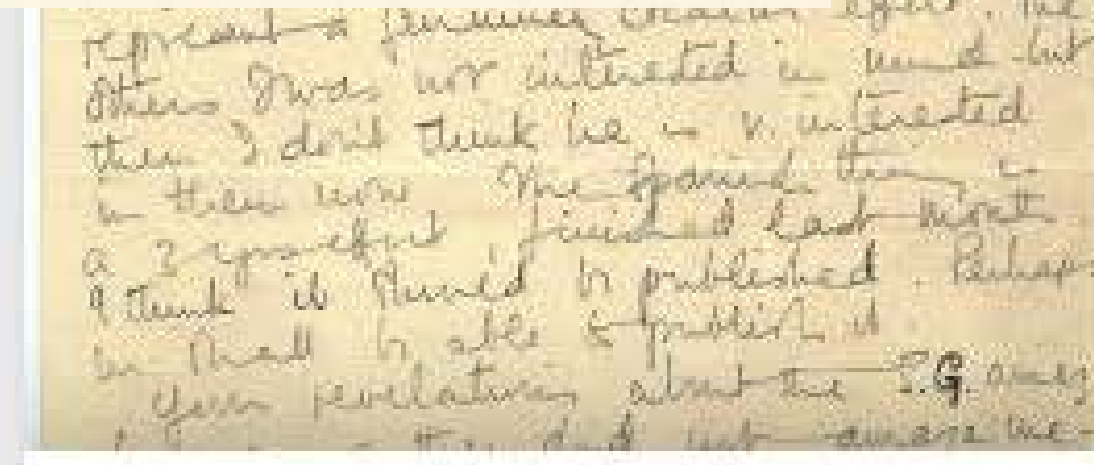 represent a feminine charm effort. The
others I was not interested in much but
then I don't think he is v. interested
in them now The Spanish thing is
a 3 yrs effort, finished last month
I think it should be published. Perhaps
we shall be able to publish it.
Your revelations about the P.G.
then did not amaze me